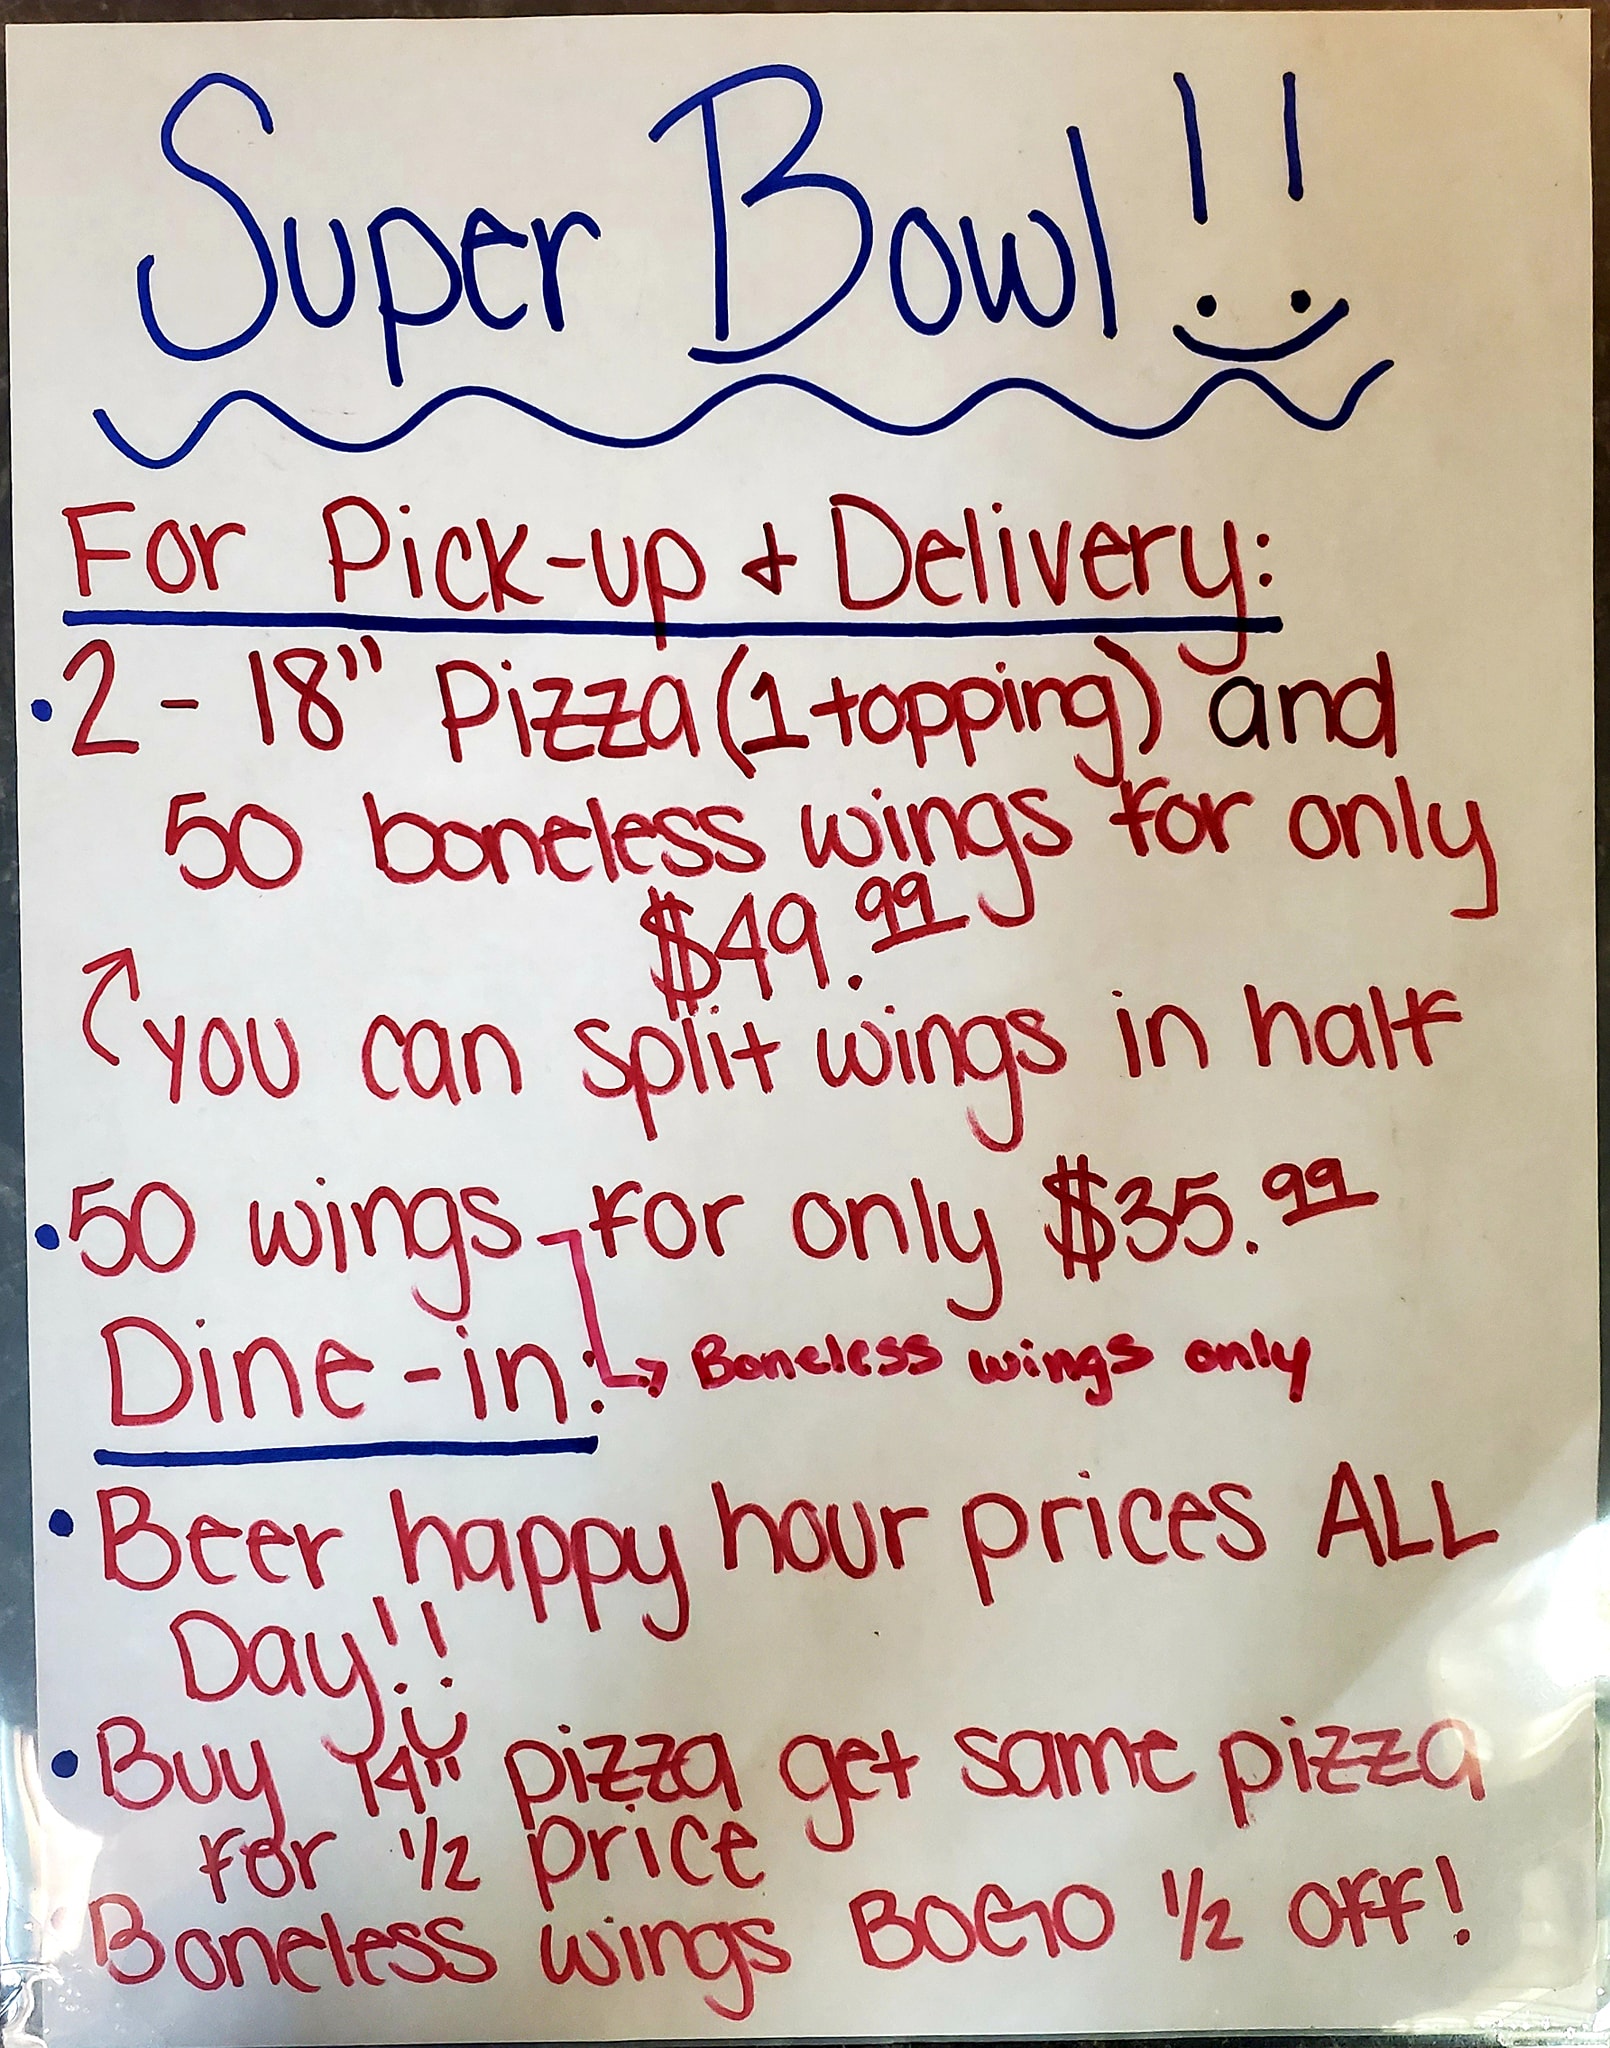 Super Bowl!!
For Pick-up + Delivery:
• 2 - 18" Pizza (1 topping) and
50 boneless wings for only
$49.99
You can split wings in half
• 50 wings for only $35.99
Dine-in:
Boneless wings only
• Beer happy hour prices ALL
Day!!
• Buy 14" pizza get same pizza
for 1/2 price
• Boneless wings BOGO 1/2 off!